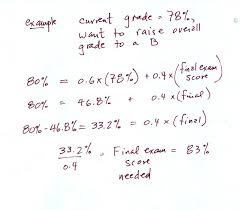 example current grade = 78%,
want to raise overall
grade to a B
80% = 0.6x(78%) + 0.4x(final exam score)
80% = 46.8% + 0.4x(final)
80% - 46.8% = 33.2% = 0.4x(final)
33.2% / 0.4 = Final exam score needed = 83%